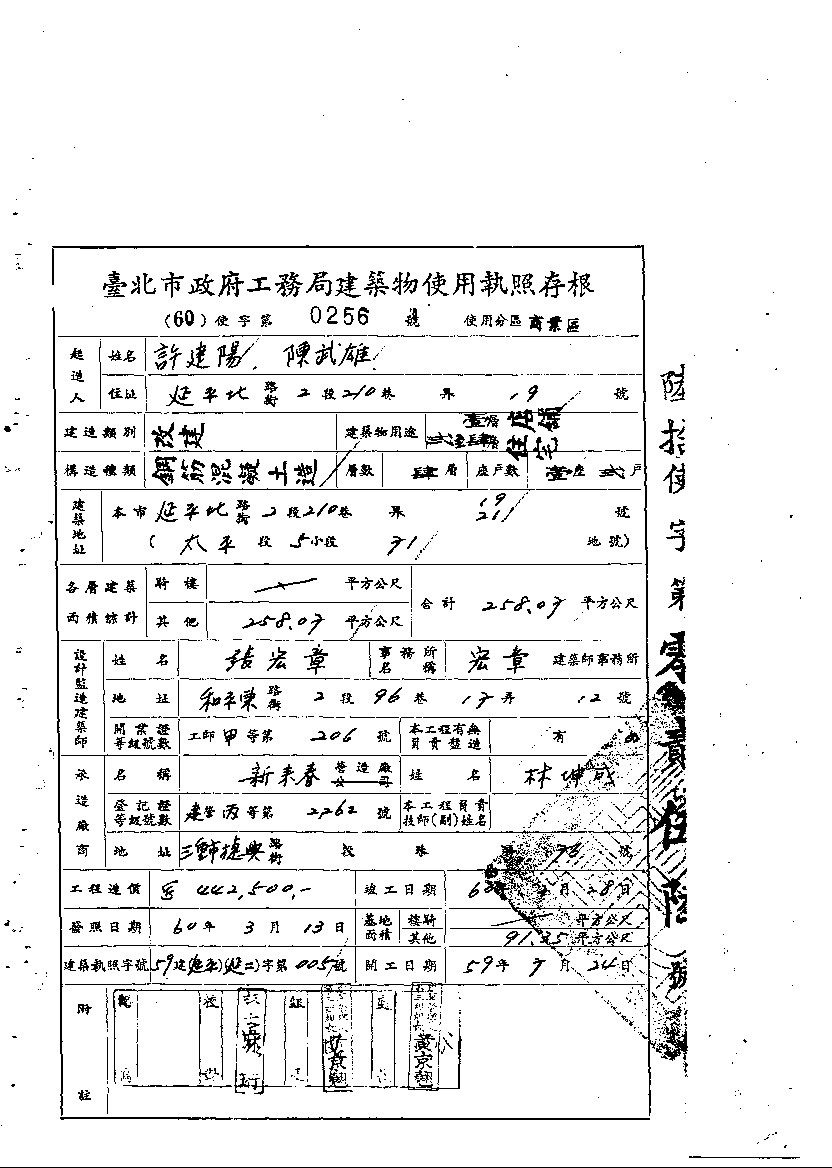 臺北市政府工務局建築物使用執照存根
(60)使字第 0256 號 使用分區 商業區
起造人 姓名 許建陽、陳武雄
住址 延平北 路街 2 段 210 巷 弄 19 號
建造類別 改建 建築物用途 壹層店舖 貳至肆層住宅
構造種類 鋼筋混凝土造 層數 肆層 座戶數 壹座 貳戶
建築地址 本市 延平北 路街 2 段 210 巷 弄 19 21 號
(太平 段 5 小段 71 地號)
各層建築面積總計 騎樓 平方公尺 合計 258.07 平方公尺
其他 258.07 平方公尺
設計監造建築師 姓名 張宏章 事務所名稱 宏章 建築師事務所
地址 和平東 路街 2 段 96 巷 17 弄 12 號
開業證等級號數 工師甲等第 206 號 本工程有無負責監造 有
承造廠商 名稱 新来春 營造廠公司 姓名 林坤
登記證等級號數 建營丙等第 2262 號 本工程負責技師(副)姓名
地址 三重市 德興 路街 段 巷 號
工程造價 442,500,- 竣工日期 月 28 日
發照日期 60 年 3 月 13 日 基地面積 樓騎 平方公尺
其他 91.35 平方公尺
建築執照字號 59 建(延平)(延二)字第 005 號 開工日期 59 年 7 月 24 日
附註
黃京翹
陸拾使字第零貳伍陸號